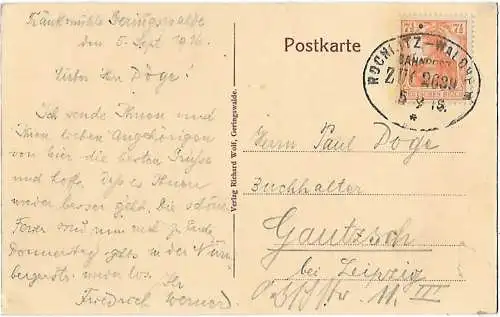 Fränkmühle Geringswalde
den 5. Sept. 1916.
Lieber Herr Döge!
Ich sende Ihnen und
Ihren lieben Angehörigen
von hier die besten Grüße
und hoffe, daß es Ihnen
wieder besser geht. Die schönen
Ferien sind nun und zu Ende
Donnerstag gehts in der Nürn-
bergerstr. wieder los.
Ihr
Friedrich Werner.
Verlag Richard Wolf, Geringswalde.
Postkarte
ROCHLITZ-WALDHEIM
BAHNPOST
ZUG
5 9 16.
Herrn Paul Döge
Buchhalter
Gautzsch
bei Leipzig
11. III